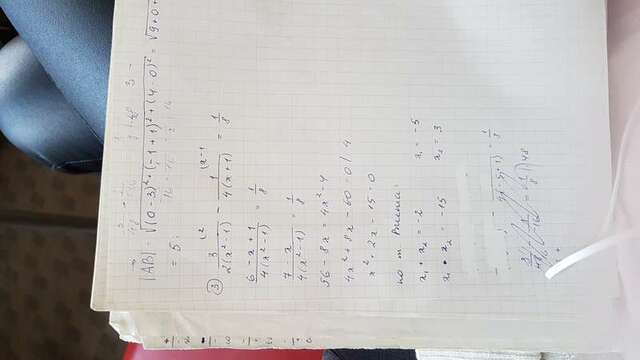 |AB| = √(0-3)²+(-1+1)²+(4-0)² = √9+0+
= 5;
③ 3/2(x²-1) - 1/4(x+1) = 1/8
(2 (x-1
6-x+1/4(x²-1) = 1/8
7-x/4(x²-1) = 1/8
56-8x = 4x²-4
4x²+8x-60=0 | 4
x²+2x-15=0
по т. Виета:
x₁+x₂ = -2 x₁ = -5
x₁•x₂ = -15 x₂ = 3
3/48 - 1/-16 = 1/8 | 48